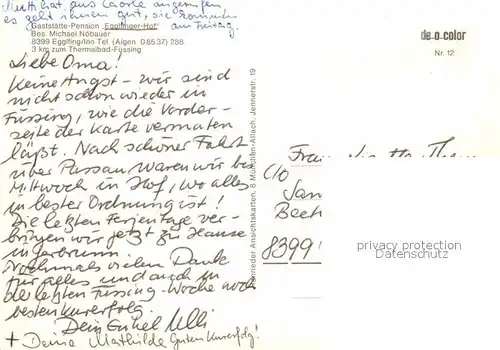 Mutti hat aus Caorle angerufen
es geht ihnen gut, sie kommen
am Freitag
Gaststätte-Pension "Egglfinger-Hof"
Bes. Michael Nöbauer
8399 Egglfing/Inn Tel. (Aigen 08537) 288
3 km zum Thermalbad-Füssing
de-o-color
Nr. 12
Liebe Oma!
Keine Angst - wir sind
nicht schon wieder in
Füssing, wie die Vorder-
seite der Karte vermuten
läßt. Nach schöner Fahrt
über Passau, waren wir bis
Mittwoch in Hof, wo alles
in bester Ordnung ist!
Die letzten Ferientage ver-
bringen wir jetzt zu Hause
in
Nochmals vielen Dank
für alles und auch in
der letzten Füssing-Woche noch
besten Kurerfolg.
Dein Enkel Ulli
+ Deine Mathilde Guten Kurerfolg!
Ansichtskarten, 8 München-Allach, Jennerstr. 19
Frau
c/o
San
Beet
8399
privacy protection
watermark